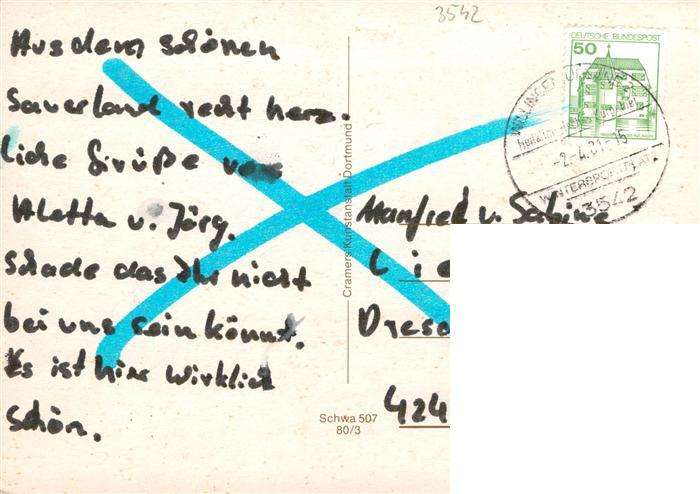 3542
Aus dem schönen
Sauerland recht herz-
liche Grüße von
Aletta u. Jörg.
Schade das Ihr nicht
bei uns sein könnt.
Es ist hier wirklich
schön.
Cramers Kunstanstalt Dortmund
Schwa 507
80/3
DEUTSCHE BUNDESPOST
50
-2.-4.81-15
WINTERSPORTPLATZ
3542
Manfred u. Sabine
Lie
Dresd
424